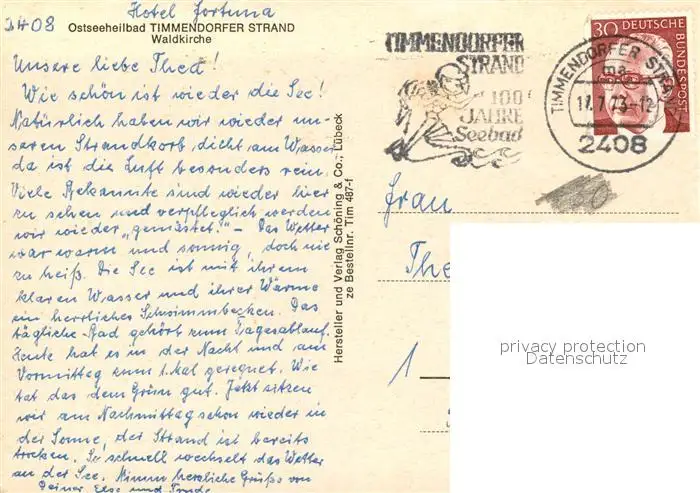 Hotel Fortuna
2408
Ostseeheilbad TIMMENDORFER STRAND
Waldkirche
Unsere liebe Thea!
Wie schön ist wieder die See!
Natürlich haben wir wieder un-
seren Strandkorb dicht am Wasser
da ist die Luft besonders rein.
Viele Bekannte sind wieder hier
zu sehen und verpfleglich werden
wir wieder „gemästet". – Das Wetter
war warm und sonnig, doch nie
zu heiß. Die See ist mit ihrem
klaren Wasser und ihrer Wärme
ein herrliches Schwimmbecken. Das
tägliche Bad gehört zum Tagesablauf.
Heute hat es in der Nacht und am
Vormittag zum 1. Mal geregnet. Wie
tat das dem Grün gut. Jetzt sitzen
wir am Nachmittag schon wieder in
der Sonne, der Strand ist bereits
trocken. So schnell wechselt das Wetter
an der See. Nimm herzliche Grüße von
Deiner Else und Trude
Hersteller und Verlag Schöning & Co., Lübeck
ze Bestellnr. Tim 487-f
TIMMENDORFER
STRAND
100
JAHRE
Seebad
30 DEUTSCHE
BUNDESPOST
TIMMENDORFER STRAND
ma
17.7.73-12
2408
50
Frau
The
1
privacy protection
Datenschutz